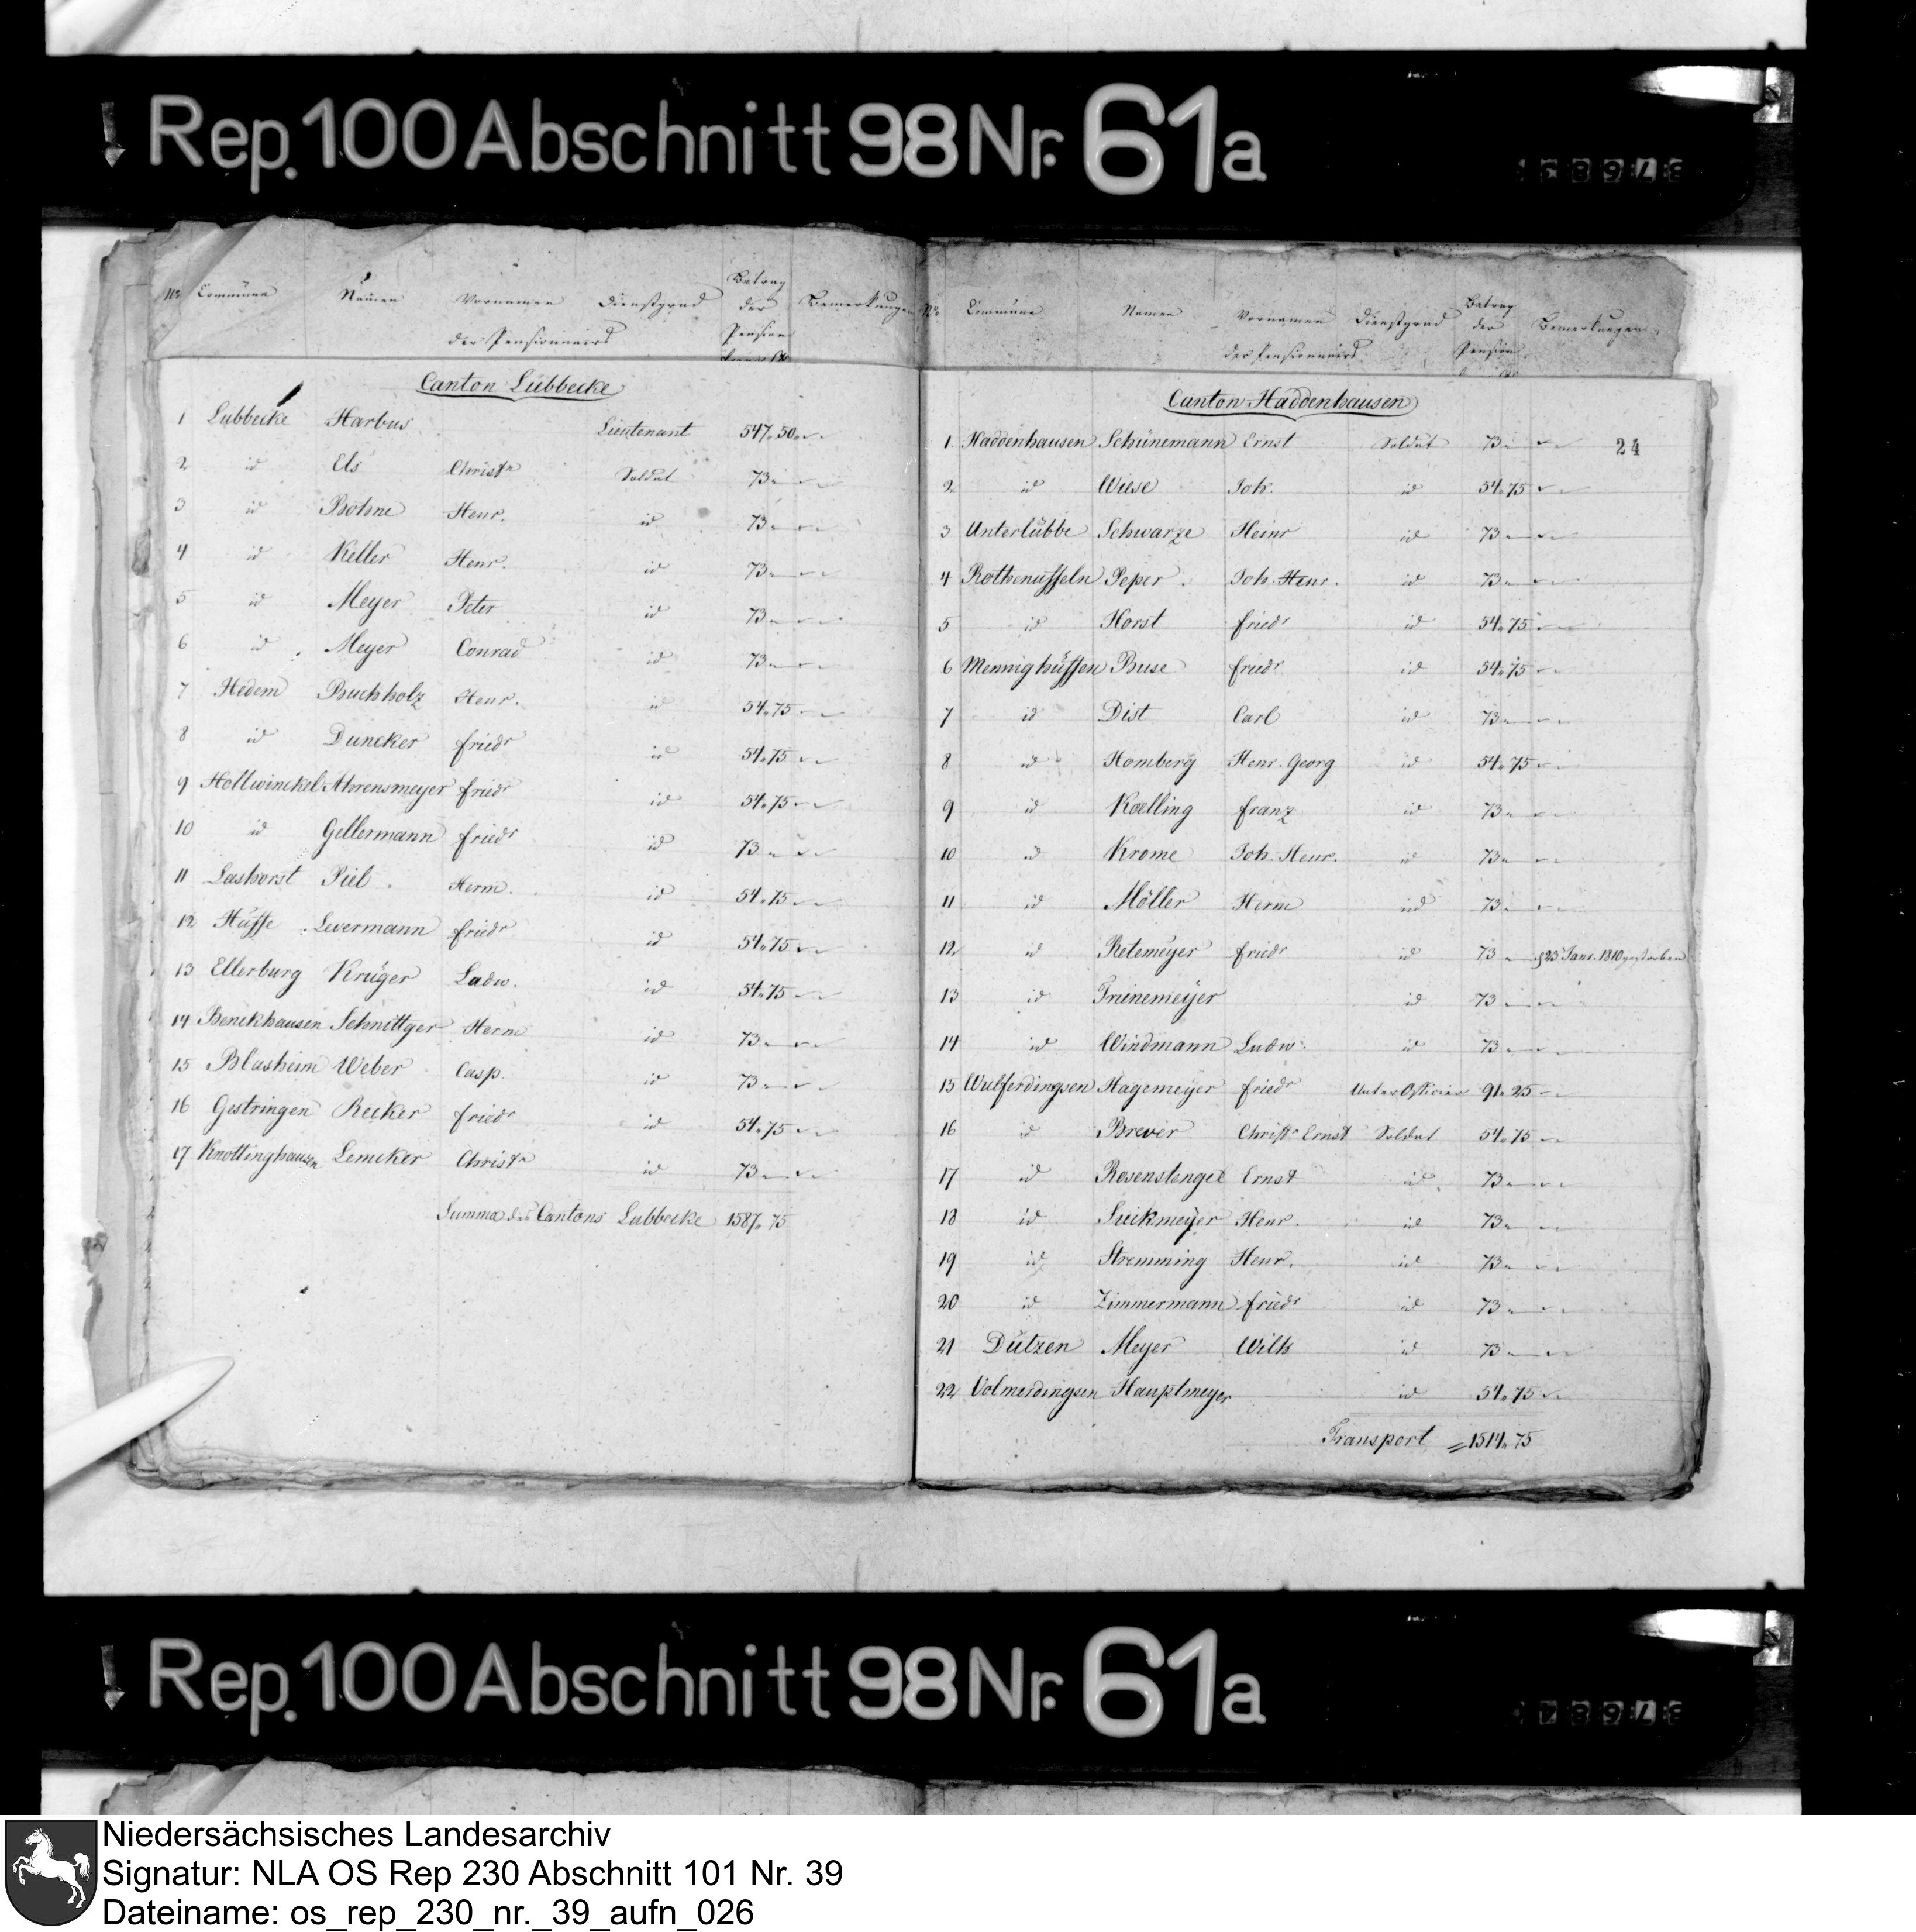 Rep. 100 Abschnitt 98 Nr. 61a
No. Commüne Namen Vornamen Dienstgrad Betrag der Pension Bemerkungen
der Pensionnairs
Canton Lübbecke
1 Lübbecke Harbus Lieutenant 547. 50.
2 id Els Christn Soldat 73.
3 id Böhne Henr. id 73.
4 id Keller Henr. id 73.
5 id Meyer Peter id 73.
6 id Meyer Conrad id 73.
7 Hedem Buchholz Henr. id 54. 75
8 id Duncker friedr id 54. 75
9 Hollwinckel Ahrensmeyer friedr id 54. 75
10 id Gellermann friedr id 73.
11 Lashorst Piel Herm. id 54. 75
12 Hüffe Levermann friedr id 54. 75
13 Ellerburg Krüger Ludw. id 54. 75
14 Benckhausen Schnittger Herm id 73.
15 Blasheim Weber Casp. id 73.
16 Gestringen Recker friedr id 54. 75
17 Knottinghausen Lemcker Christn id 73.
Summa des Cantons Lübbecke 1587. 75
No. Commüne Namen Vornamen Dienstgrad Betrag der Pension Bemerkungen
der Pensionnairs
Canton Haddenhausen
24
1 Haddenhausen Schünemann Ernst Soldat 73.
2 id Wiese Joh. id 54. 75
3 Unterlübbe Schwarze Heinr id 73.
4 Rothenuffeln Peper. Joh. Henr. id 73.
5 id Horst friedr id 54. 75
6 Mennighüffen Buse friedr id 54. 75
7 id Dist Carl id 73.
8 id Homberg Henr. Georg id 54. 75
9 id Koelling franz id 73.
10 id Krome Joh. Henr. id 73.
11 id Möller Herm id 73.
12 id Retemeyer friedr id 73 23t Janr. 1810 gestorben
13 id Trienemeyer id 73
14 id Windmann Ludw. id 73.
15 Wulferdingsen Hagemeyer friedr Unter Officier 91. 25
16 id Brever Christn Ernst Soldat 54. 75
17 id Rosenstengel Ernst id 73.
18 id Suckmeyer Henr. id 73.
19 id Stremming Henr. id 73.
20 id Zimmermann friedr id 73.
21 Dützen Meyer Wilh id 73.
22 Volmerdingsen Hauptmeyer id 54. 75
Transport = 1514. 75
Rep. 100 Abschnitt 98 Nr. 61a
Niedersächsisches Landesarchiv
Signatur: NLA OS Rep 230 Abschnitt 101 Nr. 39
Dateiname: os_rep_230_nr._39_aufn_026